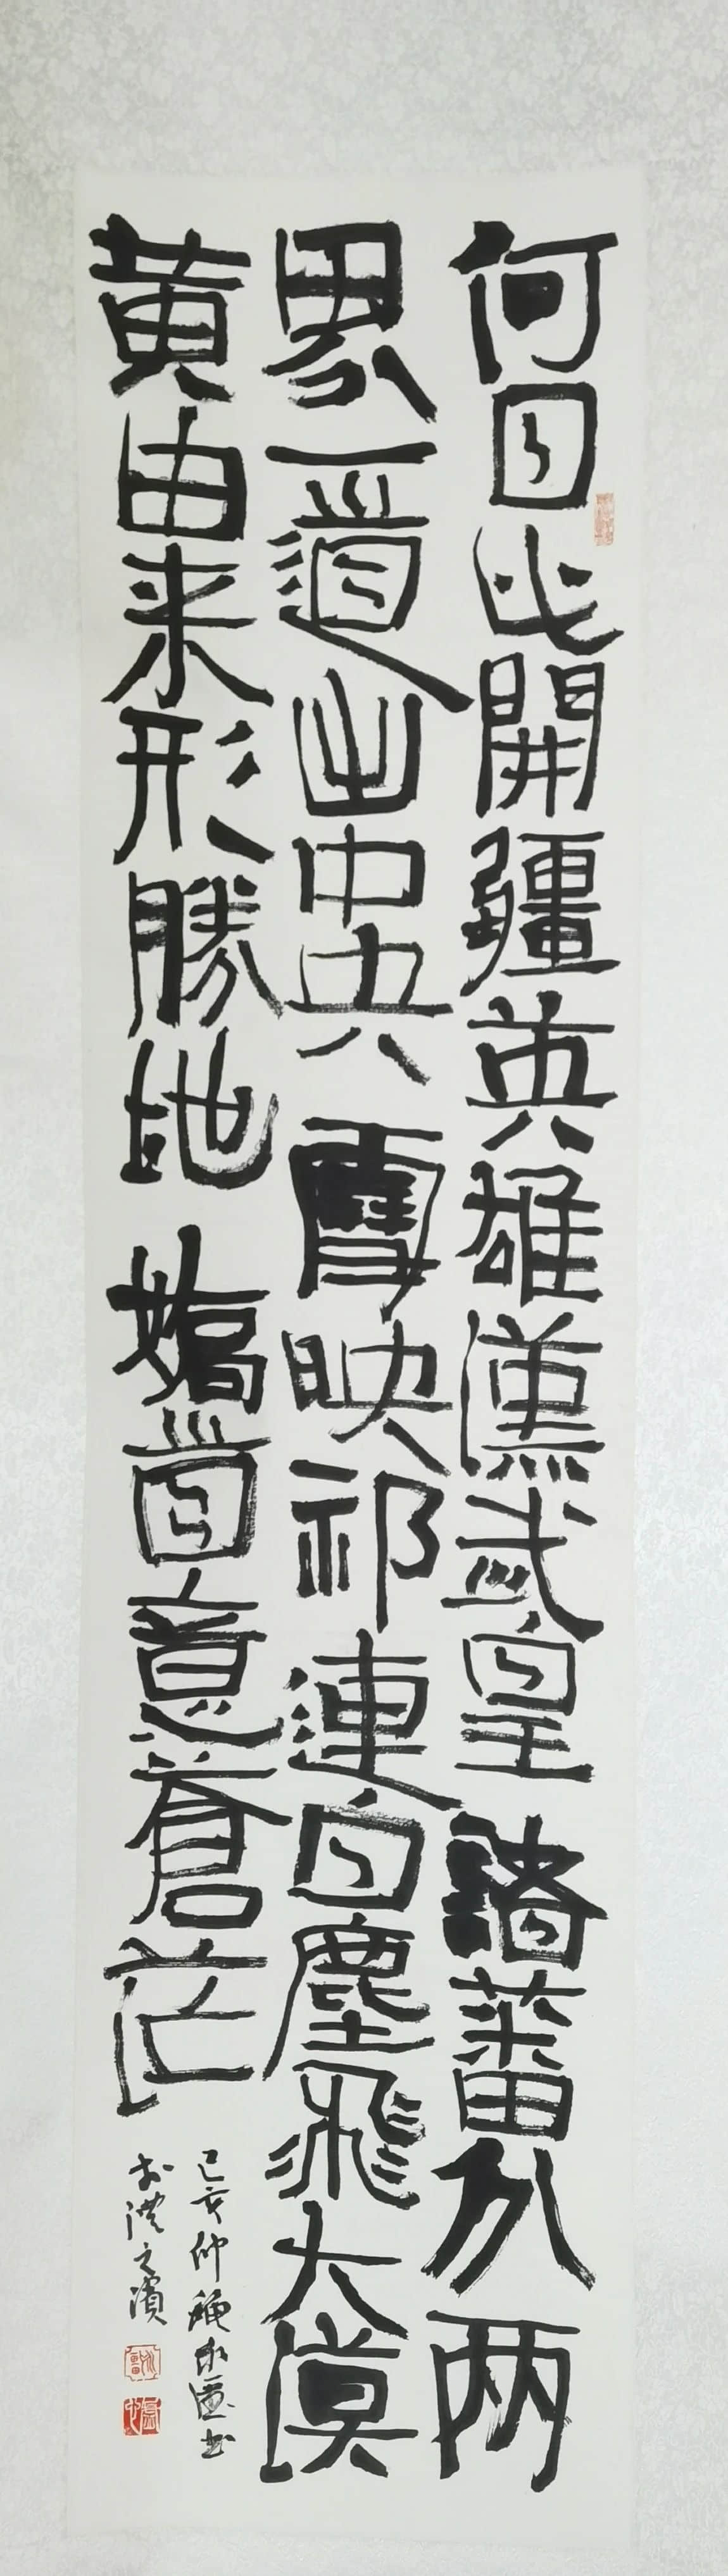 何日此開疆英雄漢武皇諸蕃分两
界一道出中央雪映祁連白塵飛大漠
黄由来形勝地矯首意蒼茫
己亥仲穐书
於之濱